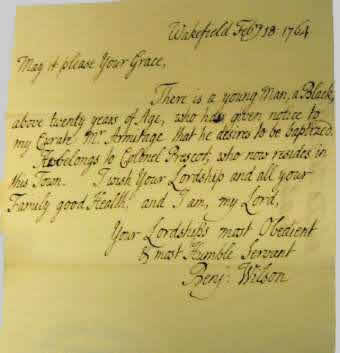 Wakefield Feb.ry 18. 1764
May it please Your Grace,
There is a young Man, a Black,
above twenty years of Age, who has given notice to
my Curate Mr. Armitage that he desires to be baptized.
He belongs to Colonel Prescot, who now resides in
this Town. I wish Your Lordship and all your
Family good Health, and I am, my Lord,
Your Lordships most Obedient
& most Humble Servant
Benj: Wilson